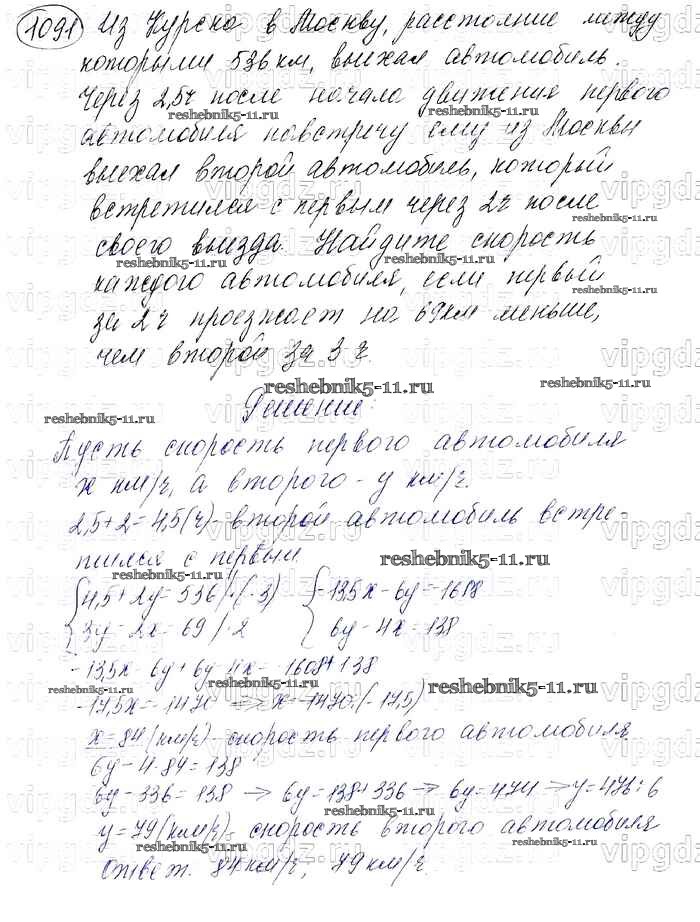 1091 Из Курска в Москву, расстояние между
которыми 536 км, выехал автомобиль.
Через 2,5ч после начала движения первого
автомобиля навстречу ему из Москвы
выехал второй автомобиль, который
встретился с первым через 2ч после
своего выезда. Найдите скорость
каждого автомобиля, если первый
за 2ч проезжает на 69км меньше,
чем второй за 3 ч.
reshebnik5-11.ru
Решение:
Пусть скорость первого автомобиля
x км/ч, а второго - y км/ч.
2,5+2=4,5(ч)- второй автомобиль встре-
тился с первым.
4,5+2y=536 /·(-3) -13,5x-6y=-1608
3y-2x=69 /·2 6y-4x=138
-13,5x-6y+6y-4x=-1608+138
-17,5x=-1470 => x=-1470:(-17,5)
x=84(км/ч)-скорость первого автомобиля
6y-4·84=138
6y-336=138 -> 6y=138+336 -> 6y=474 -> y=474:6
y=79(км/ч)- скорость второго автомобиля
Ответ. 84км/ч, 79км/ч.
vipgdz.ru